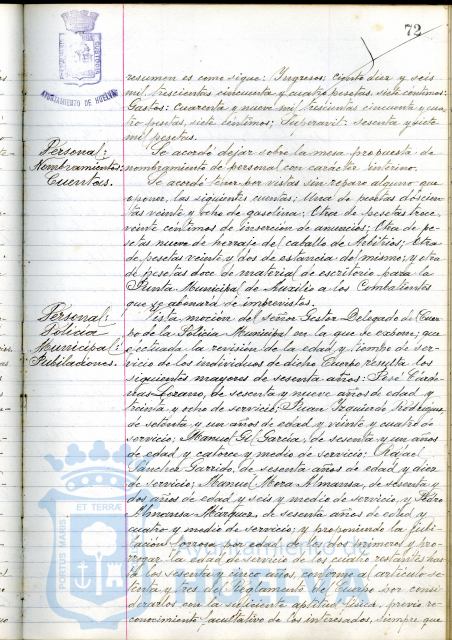 72
AYUNTAMIENTO DE HUELVA
resumen es como sigue: Ingresos: ciento diez y seis
mil trescientas cincuenta y cuatro pesetas, siete céntimos;
Gastos: Cuarenta y nueve mil trescientas cincuenta y cua
tro pesetas, siete céntimos; Superavit: sesenta y siete
mil pesetas.
Personal:
Nombramientos:
Cuentas.
Se acordó dejar sobre la mesa propuesta de
nombramiento de personal con carácter interino.
Se acordó tener por vistas sin reparo alguno que
oponer, las siguientes cuentas; Una de pesetas doscien
tas veinte y ocho de gasolina; Otra de pesetas trece,
veinte céntimos de inserción de anuncios; Otra de pe-
setas nueve de herraje del caballo de Arbitrios; Otra
de pesetas veinte y dos de estancia del mismo; y otra
de pesetas doce de material de escritorio para la
Junta Municipal de Auxilio a los Combatientes
que se abonará de imprevistos.
Personal:
Policía
Municipal:
Jubilaciones.
Vista moción del señor Gestor Delegado de Cuer
po de la Policía Municipal en la que se expone; que
efectuada la revisión de la edad y tiempo de ser-
vicio de los individuos de dicho Cuerpo, resulta los
siguientes mayores de sesenta años: José Cárde-
nas Lozano, de sesenta y nueve años de edad y
treinta y ocho de servicio; Juan Izquierdo Rodríguez,
de setenta y un años de edad y veinte y cuatro de
servicio; Manuel Gil García, de sesenta y un años
de edad y catorce y medio de servicio; Rafael
Sánchez Garrido, de sesenta años de edad y diez
de servicio; Manuel Mora Almansa, de sesenta y
dos años de edad y seis y medio de servicio, y Pedro
Almansa Márquez, de sesenta años de edad y
cuatro y medio de servicio; y proponiendo la jubi-
lación forzosa por edad de los dos primeros y pro-
rrogar la edad de servicio de los cuatro restantes has
ta los sesenta y cinco años, conforme al artículo se-
senta y tres del Reglamento de Cuerpo por consi
derarlos con la suficiente aptitud física, previo re-
conocimiento facultativo de los interesados, siempre que
ET TERRÆ
PORTUS MARIS
Ayuntamiento de